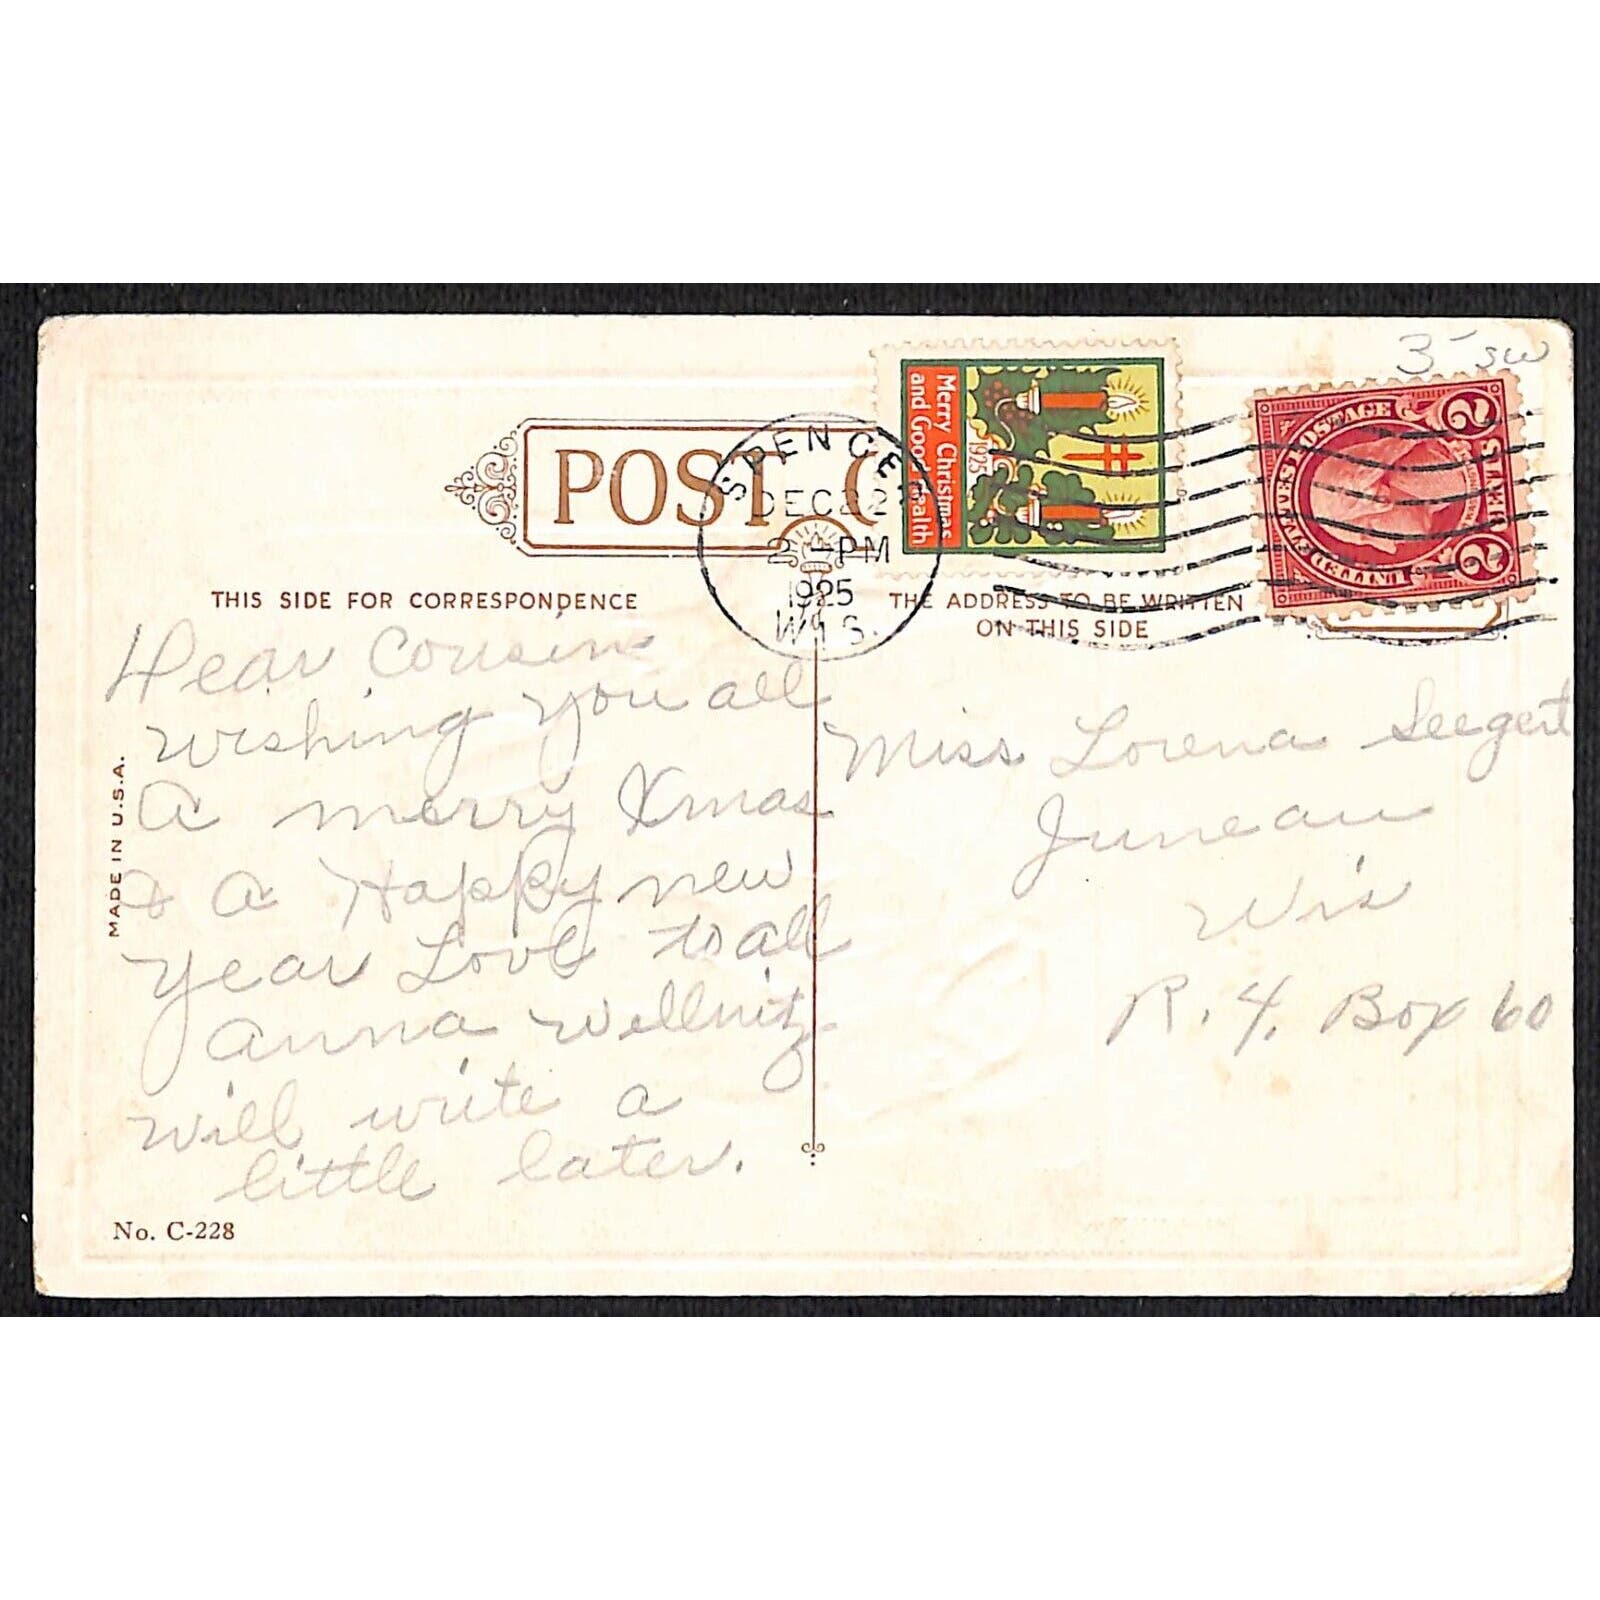 3- sw
Merry Christmas
and Good Health
1925
UNITED STATES POSTAGE
WASHINGTON
2 2
SPENCER
DEC 22
2 - PM
1925
WIS.
POST C
THIS SIDE FOR CORRESPONDENCE
THE ADDRESS TO BE WRITTEN
ON THIS SIDE
Dear Cousin
wishing you all
A merry Xmas
& A Happy new
year Love to all
Anna Wellnitz
will write a
little later.
Miss Lorena Seegert
Juneau
Wis
R. 4. Box 60
MADE IN U.S.A.
No. C-228